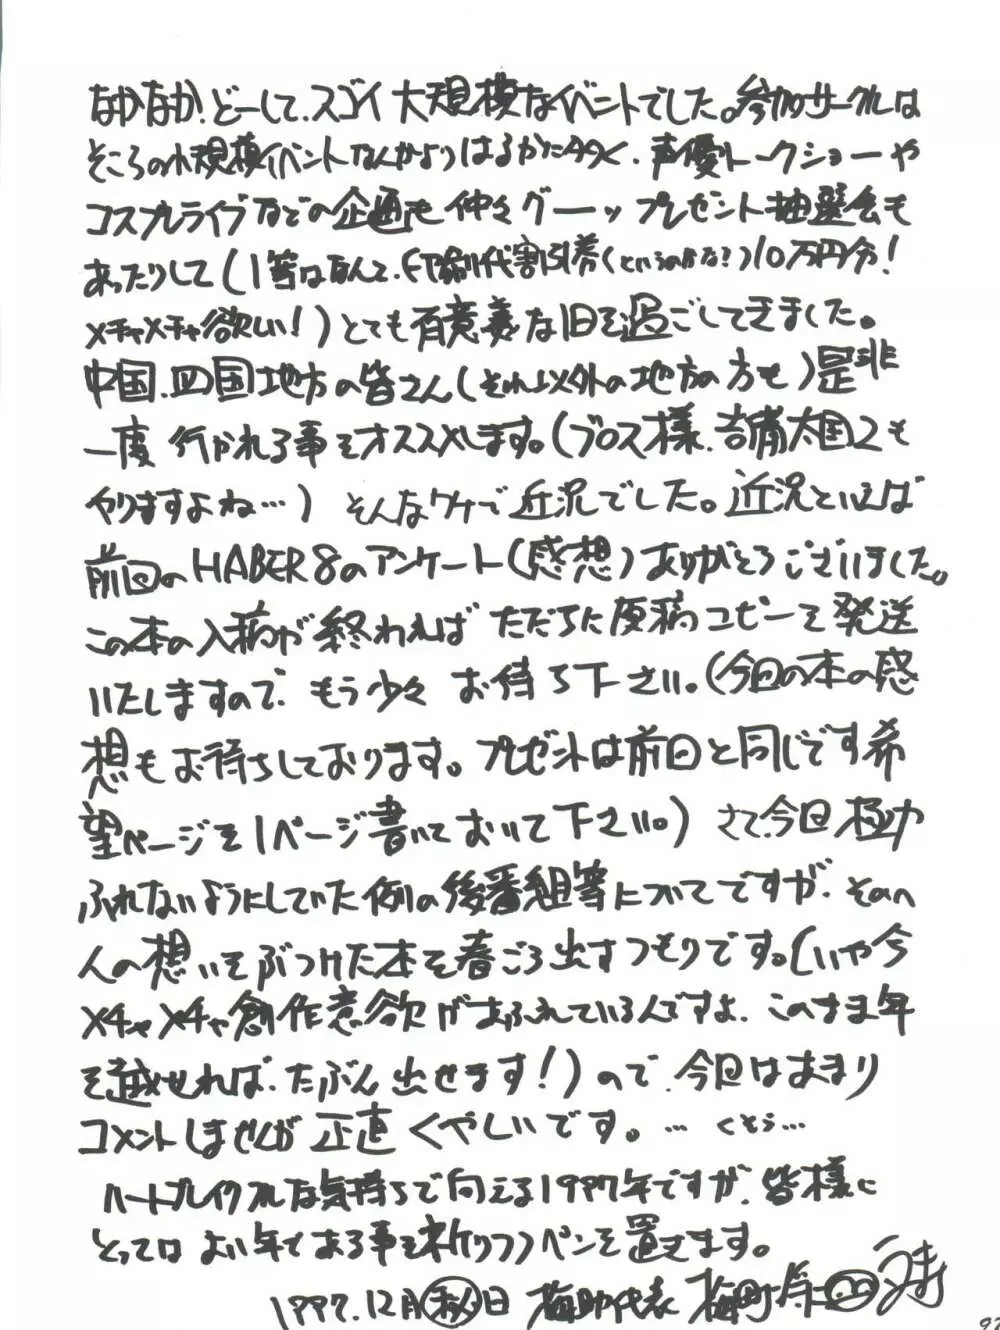 なかなか、どーして、スゴイ大規模なイベントでした。参加サークルは
そこらの小規模イベントなんかよりはるかに多く、声優トークショーや
コスプレライブなどの企画も仲々グーッ プレゼント抽選会も
あったりして(1等はなんと、印刷代割引券(というのかな?)10万円分!
メチャメチャ欲しい!)とても有意義な1日を過ごしてきました。
中国、四国地方の皆さん(それ以外の地方の方も)是非
一度 行かれる事をオススメします。(ブロス様、吉備太国2も
やりますよね…) そんなワケで近況でした。近況といえば
前回のHABER8のアンケート(感想)ありがとうございました。
この本の入稿が終わればただちに原稿コピーを発送
いたしますので、もう少々 お待ち下さい。(今回の本の感
想もお待ちしております。プレゼントは前回と同じです希
望ページを1ページ書いておいて下さい。) さて、今回極力
ふれないようにしていた例の後番組等についてですが、その
人の想いをぶつけた本を春ごろ出すつもりです。(いや今
メチャメチャ創作意欲があふれているんですよ、このまま年
を越せれば、たぶん出せます!)ので、今回はあまり
コメントしませんが正直くやしいです。… くそぅ…
ハートブレイクルな気持ちで向える1997年ですが、皆様に
とってはよい年である事を祈りつつペンを置きます。
1997.12月 日 梅助代表 梅町